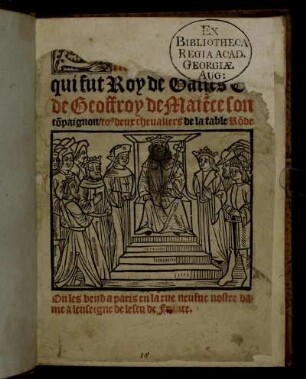 EX
BIBLIOTHECA
REGIA ACAD.
GEORGIÆ
AUG:
qui fut Roy de Galles
de Geoffroy de Maiẽce son
cõpaignon/to⁹ deux cheualiers de la table Rõde.
On les vend a paris en la rue neufue nostre da
me a lenseigne de lescu de France.